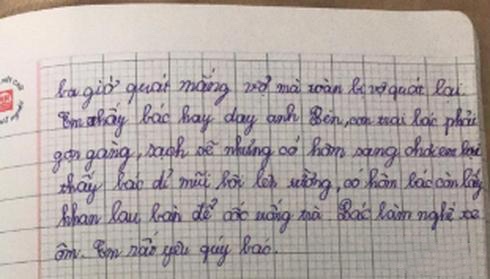 ba giờ quát mắng vợ mà toàn bị vợ quát lại.
Em thấy bác hay dạy anh Bên, con trai bác phải
gọn gàng, sạch sẽ nhưng có hôm sang chơi em lại
thấy bác dỉ mũi bôi lên tường, có hôm bác còn lấy
khan lau bàn để cốc uống trà. Bác làm nghề xe
ôm. Em rất yêu quý bac.